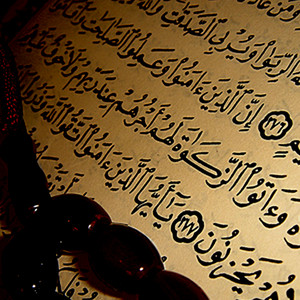 وَمَنْ عَادَ
ٱلرِّبَوٰا۟ وَيُرْبِى ٱلصَّدَقَٰتِ وَٱللَّهُ لَا
۝٢٧٦ إِنَّ ٱلَّذِينَ ءَامَنُوا۟ وَعَمِلُوا۟ ٱلصَّٰلِحَٰتِ وَأَقَامُوا۟
وَءَاتَوُا۟ ٱلزَّكَوٰةَ لَهُمْ أَجْرُهُمْ عِندَ رَبِّهِمْ وَلَا خَوْفٌ عَلَيْهِمْ
يَحْزَنُونَ ۝٢٧٧ يَٰٓأَيُّهَا ٱلَّذِينَ ءَامَنُوا۟ ٱتَّقُوا۟ ٱللَّهَ وَذَرُوا۟